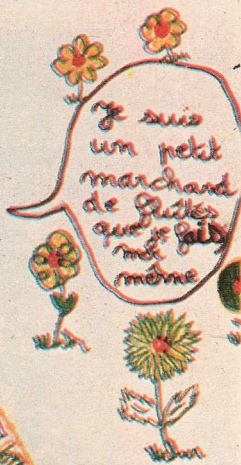 Je suis
un petit
marchand
de flûtes
que je fais
moi
même